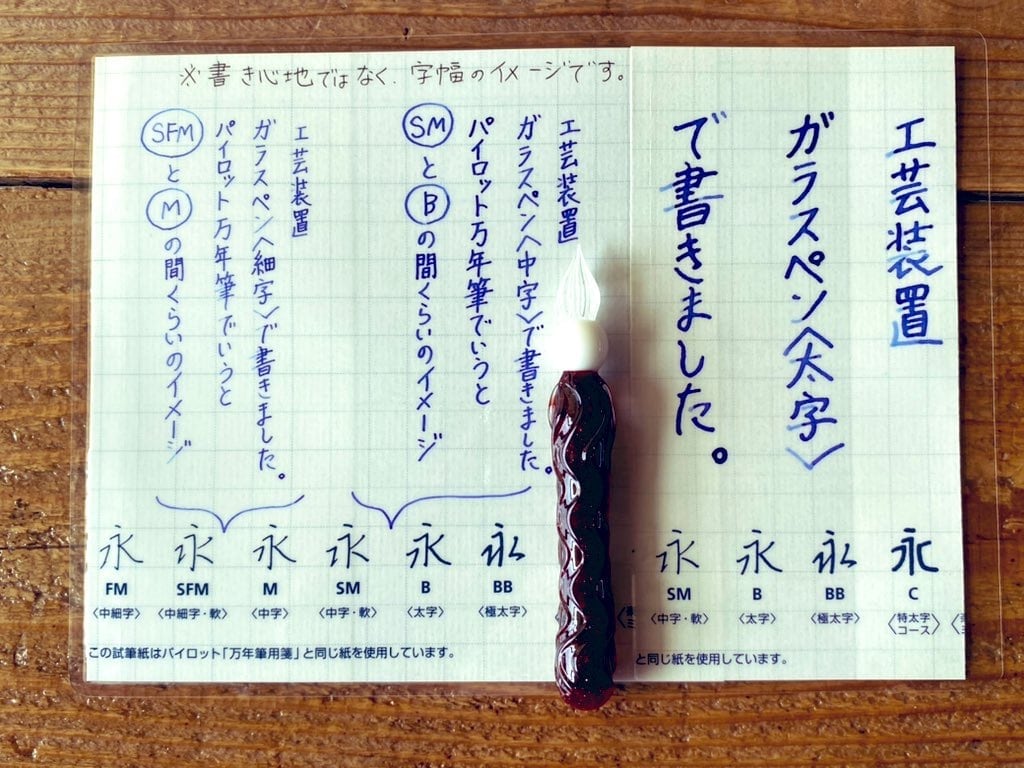 ※書き心地ではなく、字幅のイメージです。
工芸装置
ガラスペン〈太字〉
で書きました。
工芸装置
ガラスペン〈中字〉で書きました。
パイロット万年筆でいうと
SMとBの間くらいのイメージ
工芸装置
ガラスペン〈細字〉で書きました。
パイロット万年筆でいうと
SFMとMの間くらいのイメージ
永 永 永 永 永 永
FM SFM M SM B BB
〈中細字〉 〈中細字・軟〉 〈中字〉 〈中字・軟〉 〈太字〉 〈極太字〉
この試筆紙はパイロット「万年筆用箋」と同じ紙を使用しています。
永 永 永 永
SM B BB C
〈中字・軟〉 〈太字〉 〈極太字〉 〈特太字 コース〉
と同じ紙を使用しています。